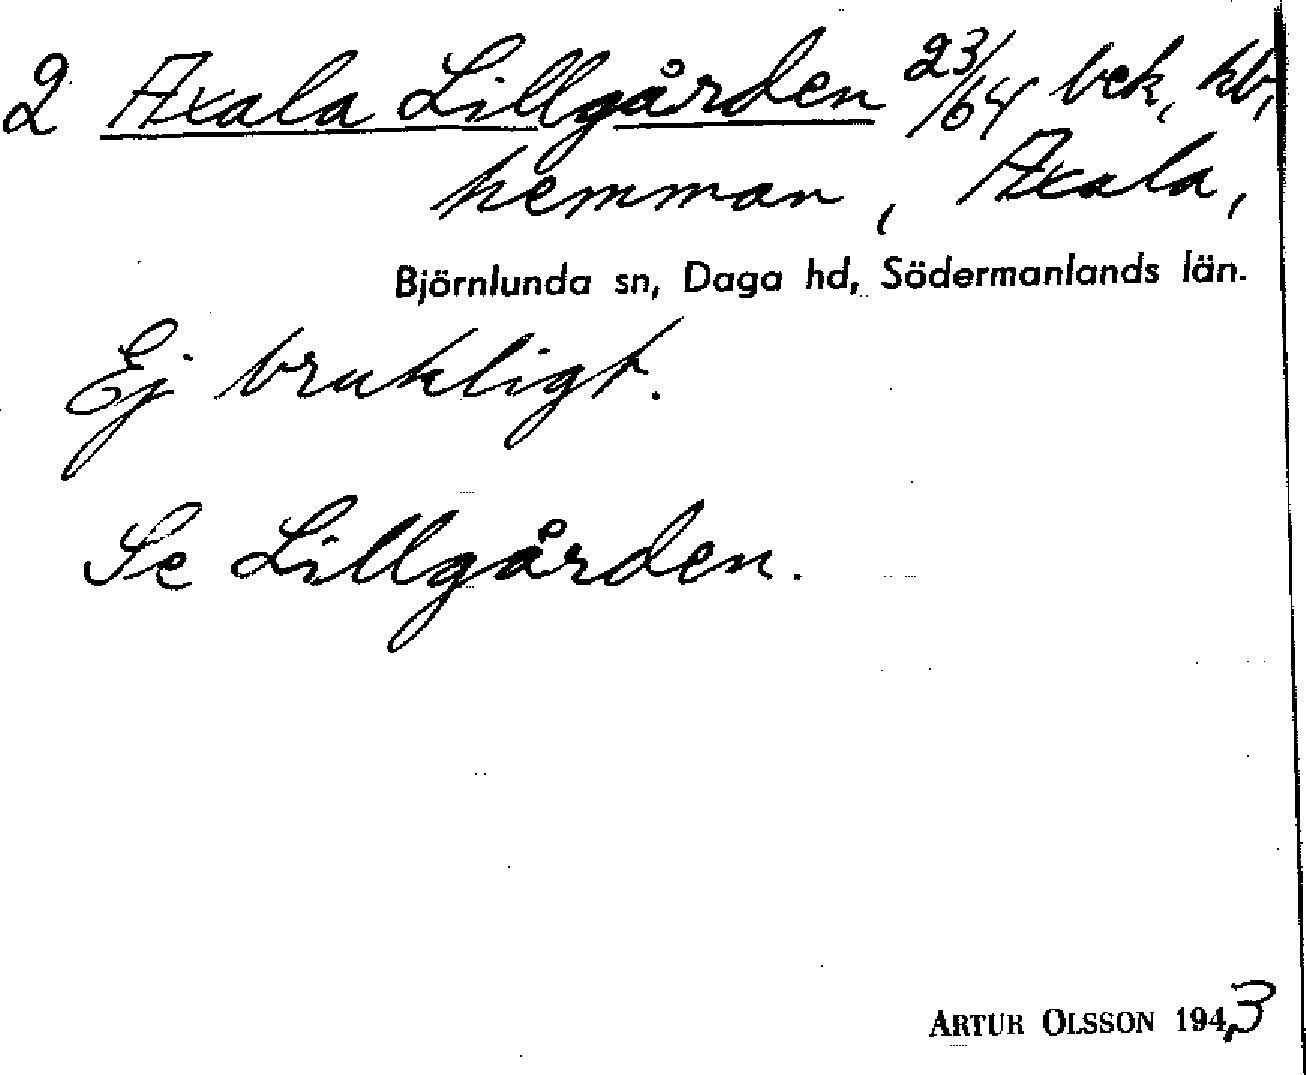 2 Axala Lillgården 23/64 bek. kb,
hemman, Axala,
Björnlunda sn, Daga hd, Södermanlands län.
Ej brukligt.
Se Lillgården.
ARTUR OLSSON 1943